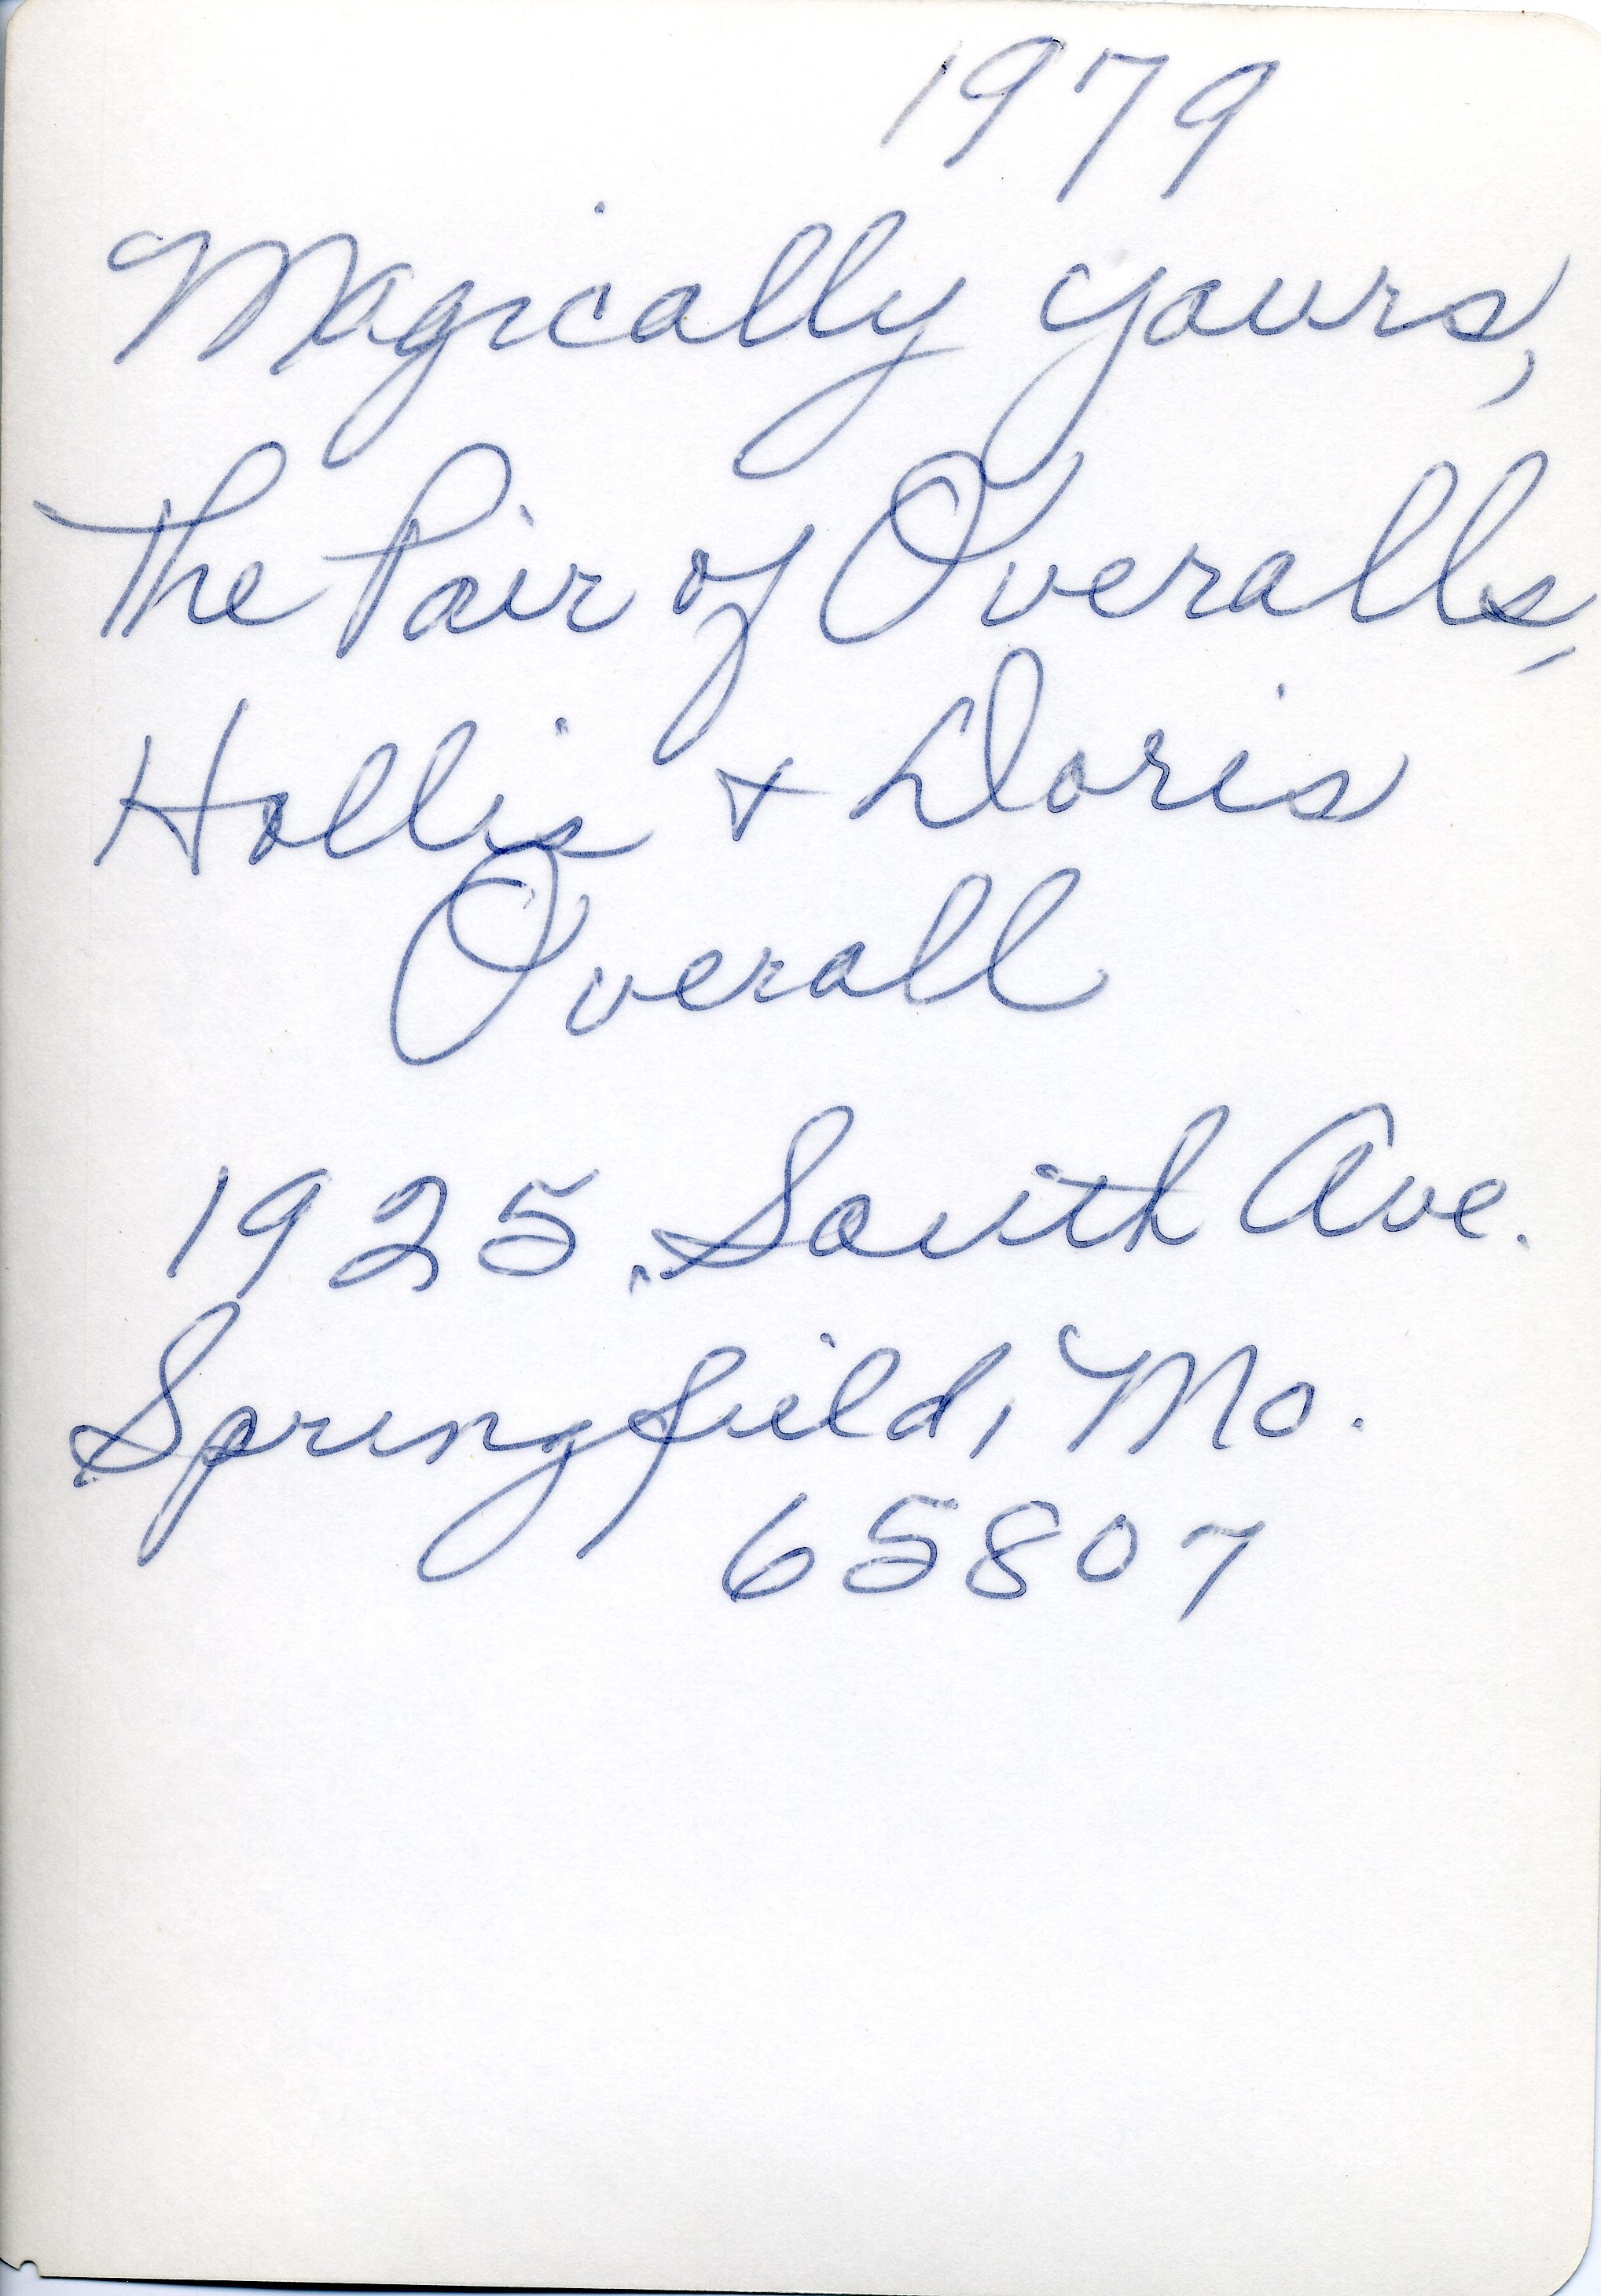 1979
Magically yours,
The Pair of Overalls,
Hollis + Doris
Overall
1925 South Ave.
Springfield, Mo.
65807